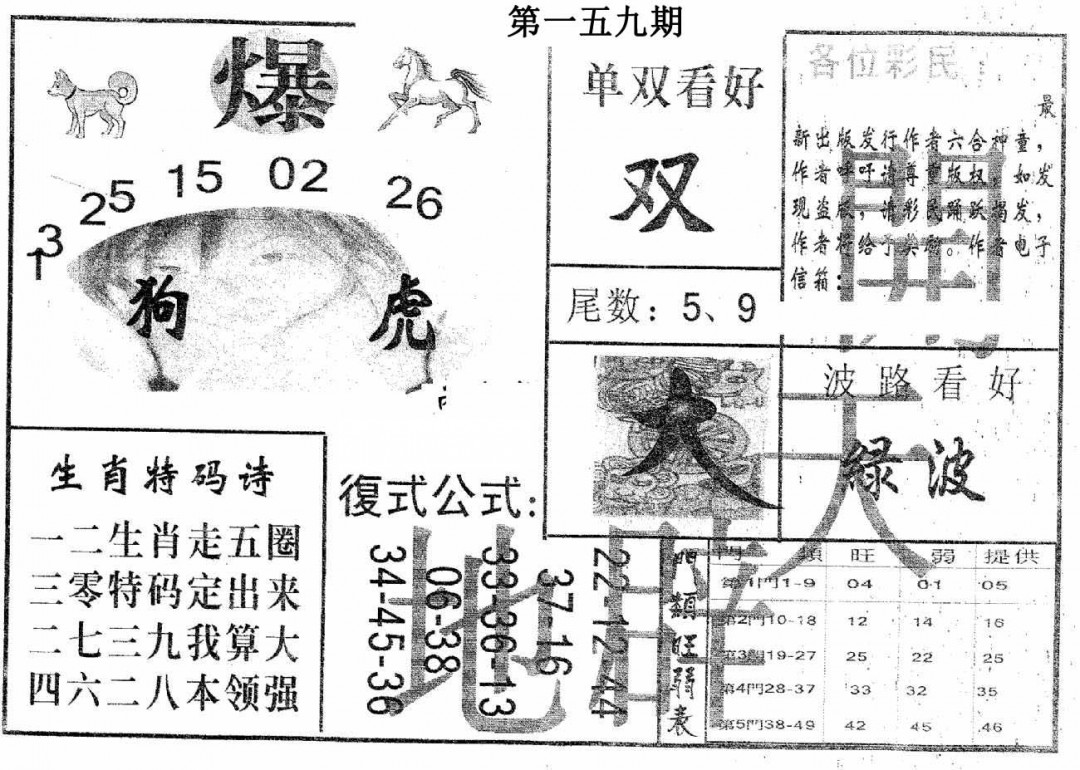 第一五九期
爆
13
25
15
02
26
狗
虎
单双看好
双
尾数：5、9
各位彩民：
最
新出版发行作者六合神童，
作者呼吁请尊重版权，如发
现盗版，请彩民踊跃揭发，
作者将给予奖励。作者电子
信箱：
大
波路看好
绿波
生肖特码诗
一二生肖走五圈
三零特码定出来
二七三九我算大
四六二八本领强
復式公式：
34-45-36
06-38
33-36-13
37-16
22-12-44
門類旺弱表
門類 旺 弱 提供
第1門1-9 04 01 05
第2門10-18 12 14 16
第3門19-27 25 22 25
第4門28-37 33 32 35
第5門38-49 42 45 46